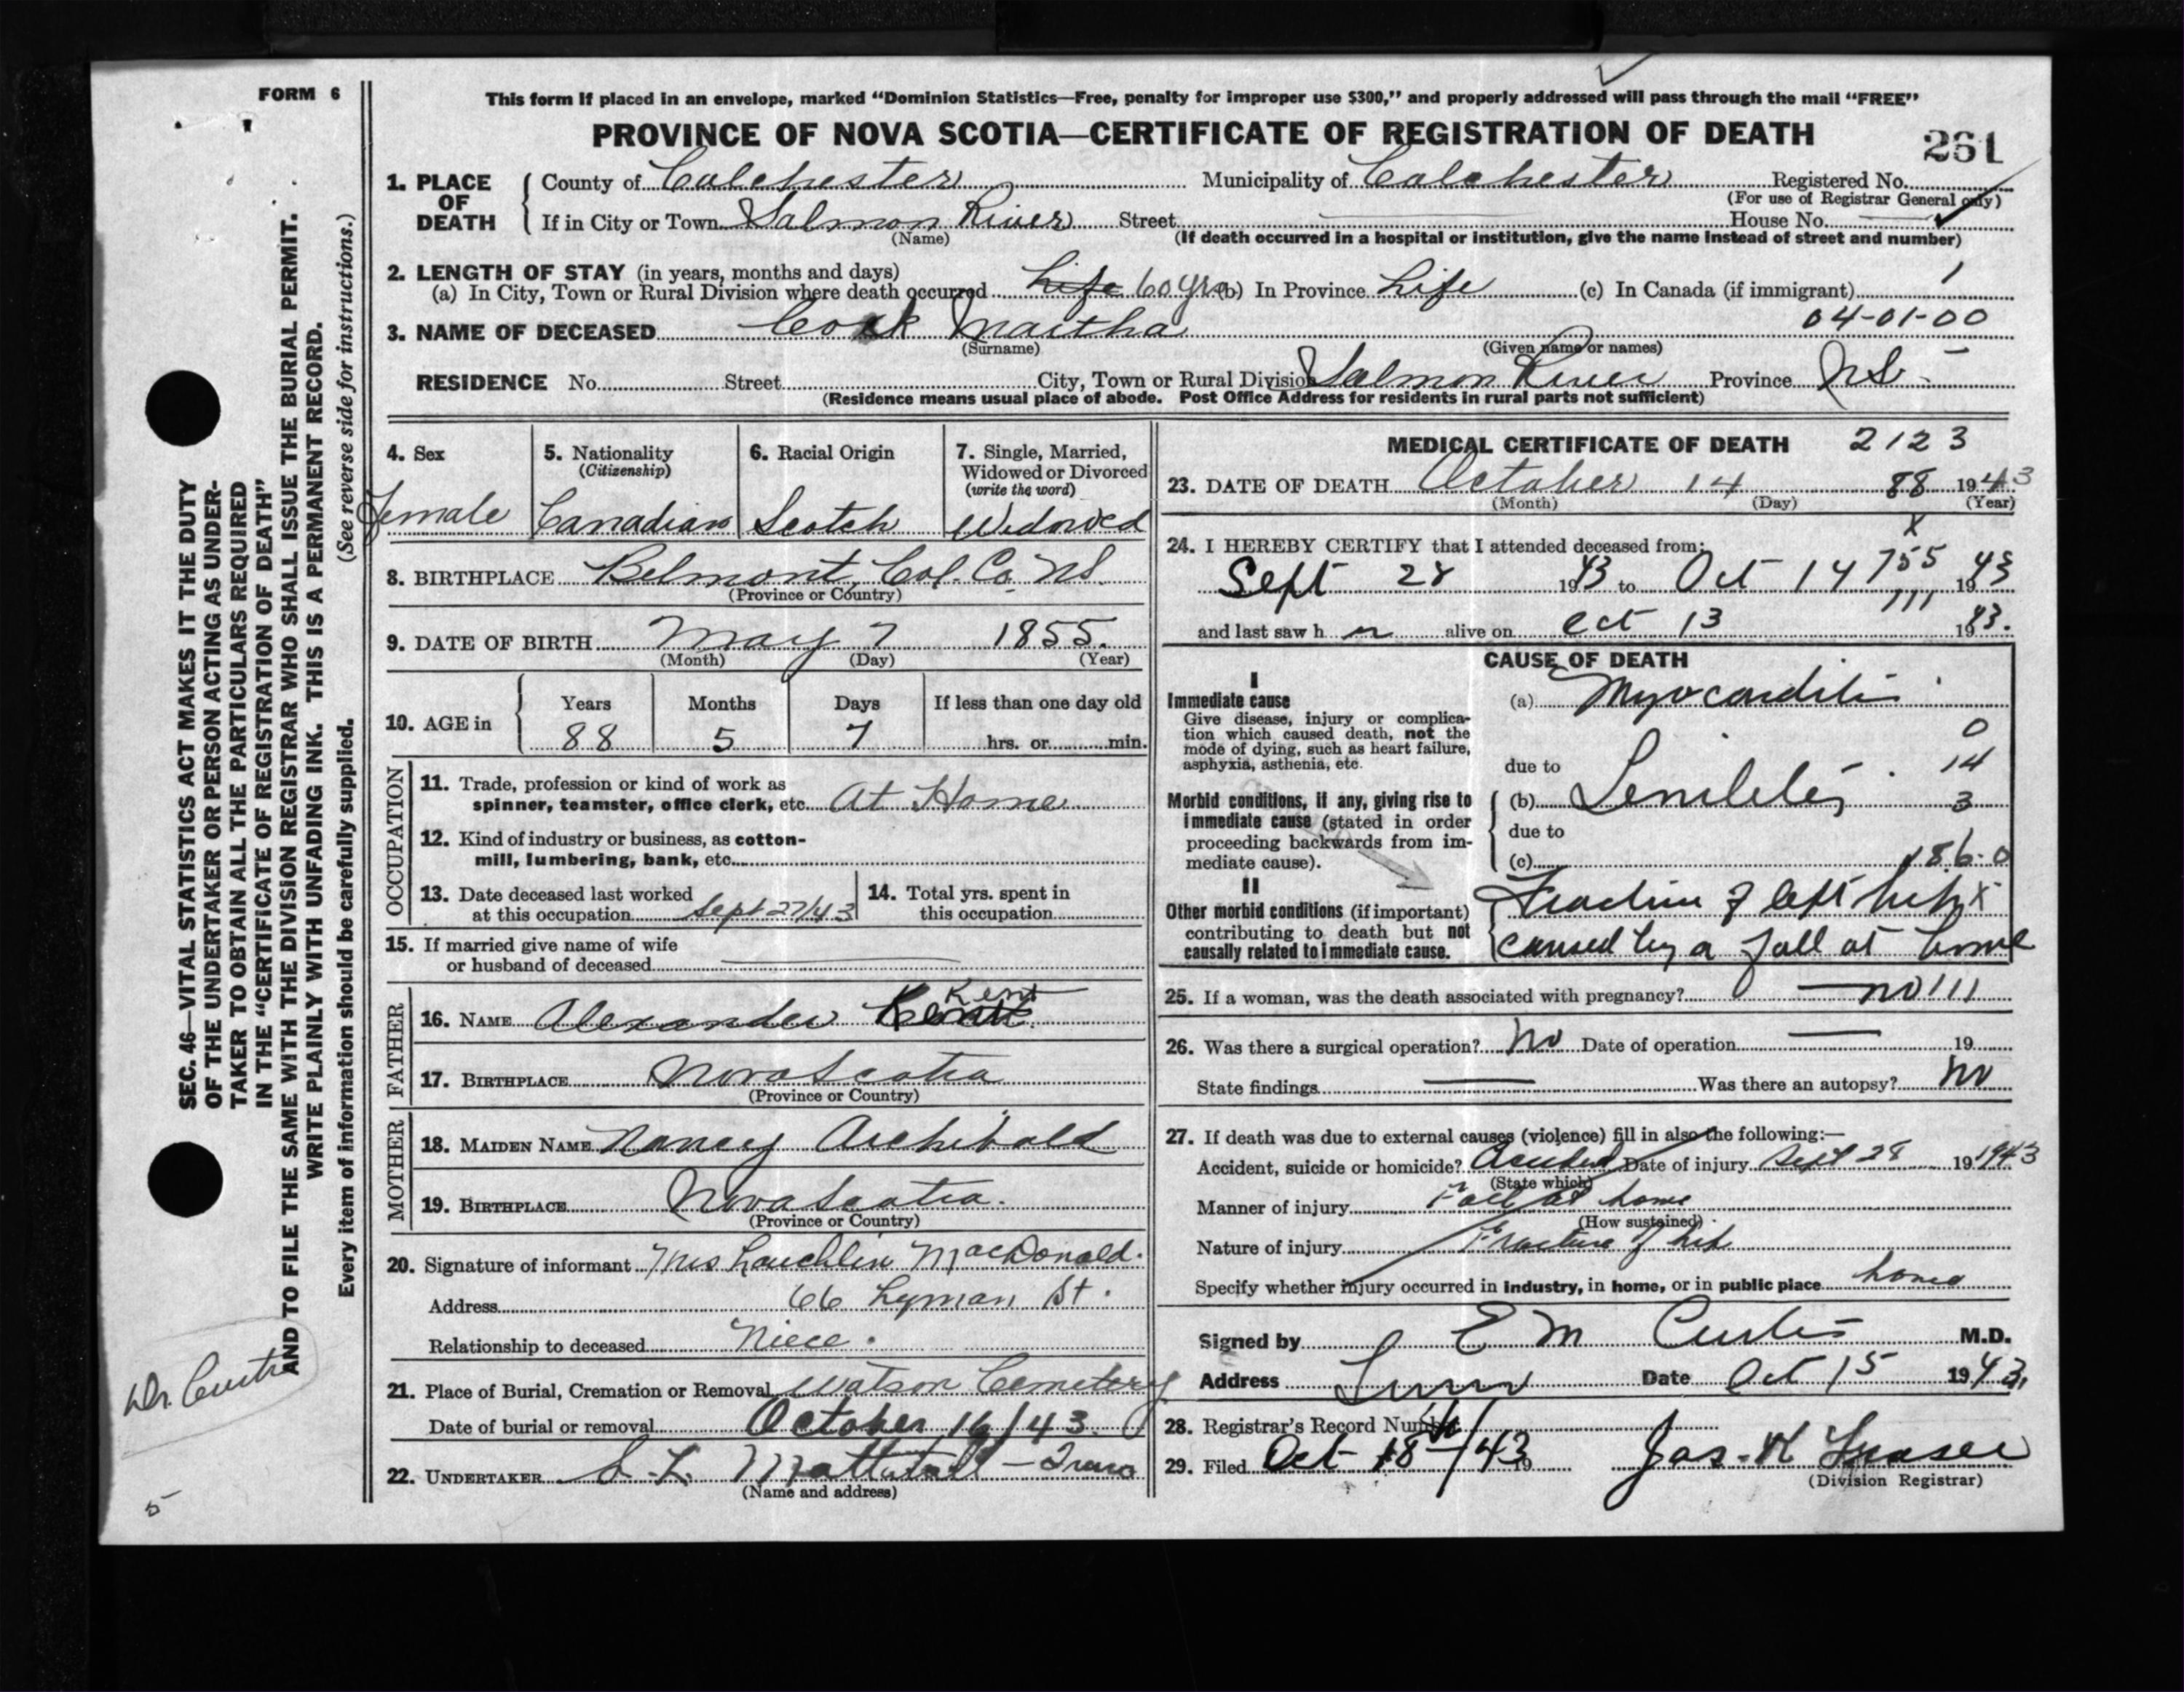 FORM 6
This form if placed in an envelope, marked "Dominion Statistics—Free, penalty for improper use $300," and properly addressed will pass through the mail "FREE"
PROVINCE OF NOVA SCOTIA—CERTIFICATE OF REGISTRATION OF DEATH
261
1. PLACE OF DEATH
County of Colchester Municipality of Colchester Registered No.
(For use of Registrar General only)
If in City or Town Salmon River Street House No.
(Name) (If death occurred in a hospital or institution, give the name instead of street and number)
2. LENGTH OF STAY (in years, months and days)
(a) In City, Town or Rural Division where death occurred Life 60 yrs (b) In Province Life (c) In Canada (if immigrant) 1
04-01-00
3. NAME OF DECEASED Cock Martha
(Surname) (Given name or names)
RESIDENCE No. Street City, Town or Rural Division Salmon River Province NS
(Residence means usual place of abode. Post Office Address for residents in rural parts not sufficient)
4. Sex Female
5. Nationality (Citizenship) Canadian
6. Racial Origin Scotch
7. Single, Married, Widowed or Divorced (write the word) Widowed
8. BIRTHPLACE Belmont, Col. Co. NS.
(Province or Country)
9. DATE OF BIRTH May 7 1855.
(Month) (Day) (Year)
10. AGE in
Years Months Days If less than one day old
88 5 7 hrs. or min.
OCCUPATION
11. Trade, profession or kind of work as
spinner, teamster, office clerk, etc. At Home
12. Kind of industry or business, as cotton-
mill, lumbering, bank, etc.
13. Date deceased last worked
at this occupation Sept 27/43
14. Total yrs. spent in
this occupation
15. If married give name of wife
or husband of deceased
FATHER
Kent
16. NAME Alexander
17. BIRTHPLACE Nova Scotia
(Province or Country)
MOTHER
18. MAIDEN NAME Nancy Archibald
19. BIRTHPLACE Nova Scotia.
(Province or Country)
20. Signature of informant Mrs Lauchlin MacDonald.
Address 66 Lyman St.
Relationship to deceased Niece.
21. Place of Burial, Cremation or Removal Watson Cemetery
Date of burial or removal October 16/43.
22. UNDERTAKER Mattatall - Truro
(Name and address)
MEDICAL CERTIFICATE OF DEATH 2123
23. DATE OF DEATH October 14 88 1943
(Month) (Day) (Year)
X
24. I HEREBY CERTIFY that I attended deceased from:
Sept 28 1943 to Oct 14 755 1943
111
and last saw h er alive on Oct 13 1943.
CAUSE OF DEATH
I
Immediate cause
Give disease, injury or complica-
tion which caused death, not the
mode of dying, such as heart failure,
asphyxia, asthenia, etc.
(a) Myocarditis
0
due to 14
Morbid conditions, if any, giving rise to
immediate cause (stated in order
proceeding backwards from im-
mediate cause).
(b) Senility 3
due to
(c) 186-0
II
Other morbid conditions (if important)
contributing to death but not
causally related to immediate cause.
Fracture of left hip X
caused by a fall at home
25. If a woman, was the death associated with pregnancy? no 111
26. Was there a surgical operation? No Date of operation 19
State findings Was there an autopsy? No
27. If death was due to external causes (violence) fill in also the following:—
Accident, suicide or homicide? Accident Date of injury Sept 28 19 1943
(State which)
Manner of injury Fall at home
(How sustained)
Nature of injury Fracture of hip
Specify whether injury occurred in industry, in home, or in public place home
Signed by E M Curtis M.D.
Address Truro Date Oct 15 1943.
28. Registrar's Record Number
29. Filed Oct 18th/43 19 Jas. K Fraser
(Division Registrar)
SEC. 46—VITAL STATISTICS ACT MAKES IT THE DUTY
OF THE UNDERTAKER OR PERSON ACTING AS UNDER-
TAKER TO OBTAIN ALL THE PARTICULARS REQUIRED
IN THE "CERTIFICATE OF REGISTRATION OF DEATH"
AND TO FILE THE SAME WITH THE DIVISION REGISTRAR WHO SHALL ISSUE THE BURIAL PERMIT.
WRITE PLAINLY WITH UNFADING INK. THIS IS A PERMANENT RECORD.
Every item of information should be carefully supplied. (See reverse side for instructions.)
Dr. Curtis
5